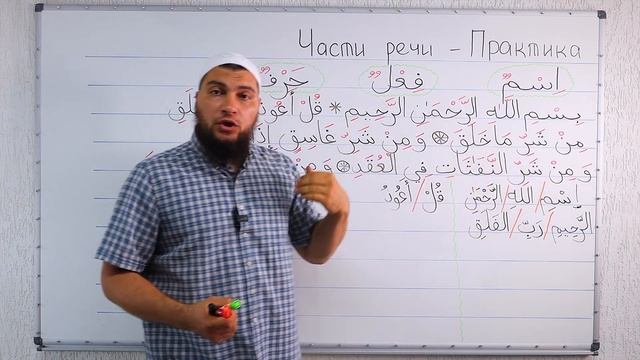 Части речи – Практика
اِسْمٌ فِعْلٌ حَرْفٌ
بِسْمِ اللَّهِ الرَّحْمَٰنِ الرَّحِيمِ * قُلْ أَعُوذُ
مِنْ شَرِّ مَا خَلَقَ * وَ مِنْ شَرِّ غَاسِقٍ إِذَا
وَ مِنْ شَرِّ النَّفَّثَاتِ فِي العُقَدِ * وَ مِنْ
اِسْمِ/اللَّهِ/الرَّحْمَٰنِ قُلْ/أَعُوذُ
الرَّحِيمِ/رَبِّ/الفَلَقِ